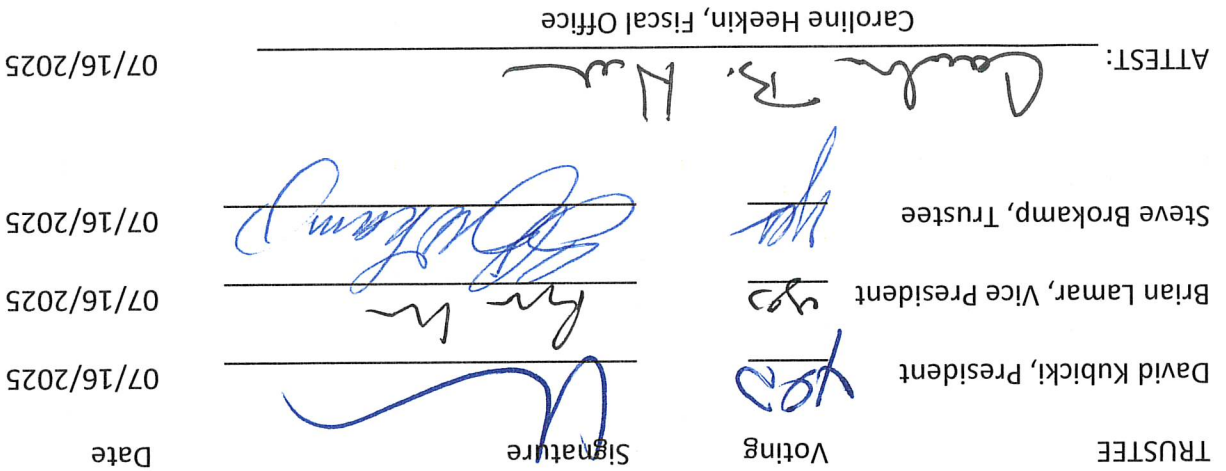 TRUSTEE Voting Signature Date
David Kubicki, President yes 07/16/2025
Brian Lamar, Vice President yes 07/16/2025
Steve Brokamp, Trustee yes SBrokamp 07/16/2025
ATTEST: B. 07/16/2025
Caroline Heekin, Fiscal Office